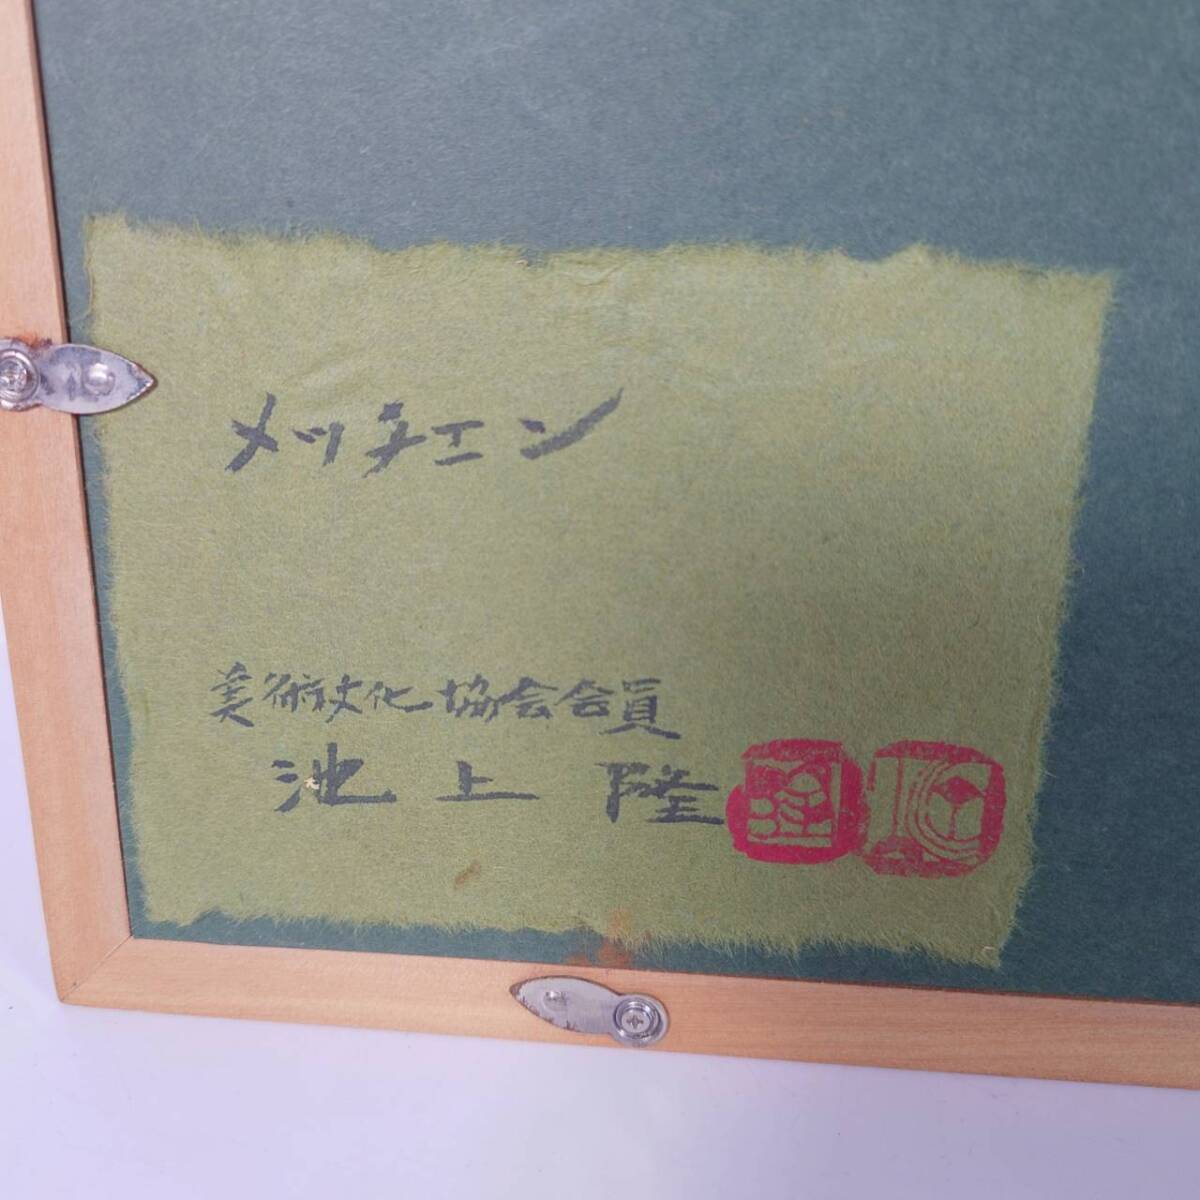 メッチェン
美術文化協会会員
池上 隆